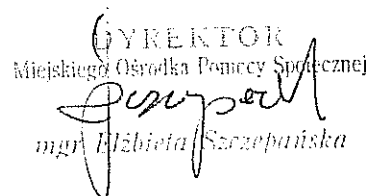 DYREKTOR
Miejskiego Ośrodka Pomocy Społecznej
mgr Elżbieta Szczepańska